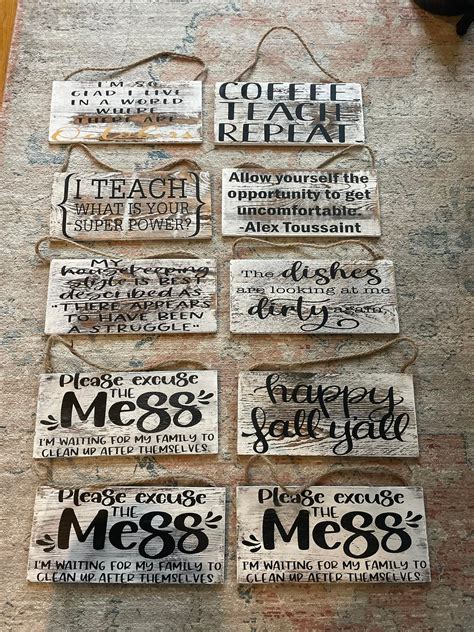 I'M SO
GLAD I LIVE
IN A WORLD
WHERE
THERE ARE
Octobers
COFFEE
TEACH
REPEAT.
I TEACH
WHAT IS YOUR
SUPER POWER?
Allow yourself the
opportunity to get
uncomfortable.
-Alex Toussaint
MY
housekeeping
style IS BEST
DESCRIBED AS
"THERE APPEARS
TO HAVE BEEN
A STRUGGLE"
The dishes
are looking at me
dirty again.
Please excuse
THE
Mess
I'M WAITING FOR MY FAMILY TO
CLEAN UP AFTER THEMSELVES.
happy
fall y'all
Please excuse
THE
Mess
I'M WAITING FOR MY FAMILY TO
CLEAN UP AFTER THEMSELVES.
Please excuse
THE
Mess
I'M WAITING FOR MY FAMILY TO
CLEAN UP AFTER THEMSELVES.